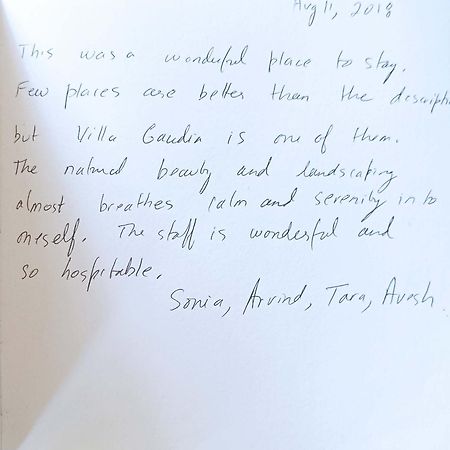 Aug 11, 2018
This was a wonderful place to stay.
Few places are better than the descripti
but Villa Gaudia is one of them.
The natural beauty and landscaping
almost breathes calm and serenity into
oneself. The staff is wonderful and
so hospitable.
Sonia, Arvind, Tara, Avesh